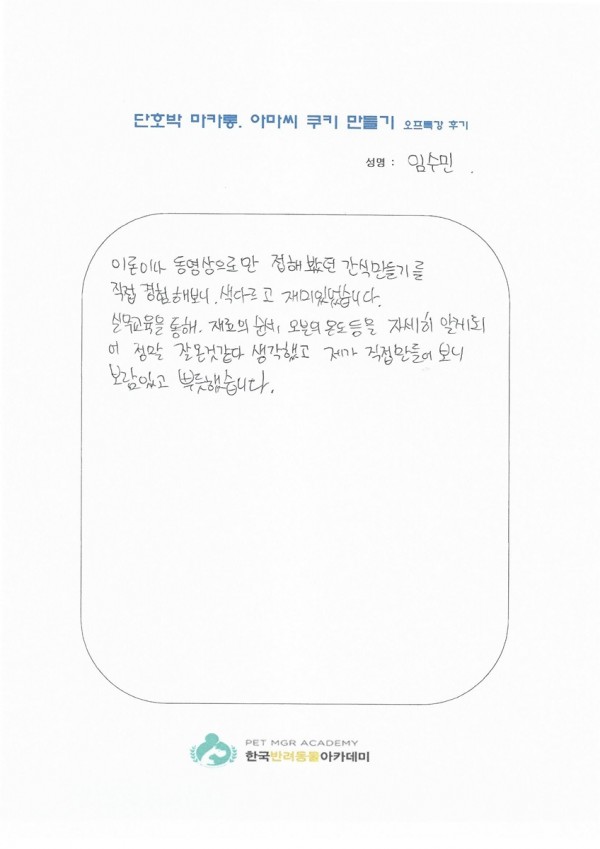 단호박 마카롱. 아마씨 쿠키 만들기 오프특강 후기
성명 : 임수민 .
이론이나 동영상으로만 접해봤던 간식만들기를
직접 경험해보니, 색다르고 재미있었습니다.
실무교육을 통해, 재료의 순서, 오븐의 온도등을 자세히 알게되
어 정말 잘온것같다 생각했고 제가 직접만들어 보니
보람있고 뿌듯했습니다.
PET MGR ACADEMY
한국반려동물아카데미